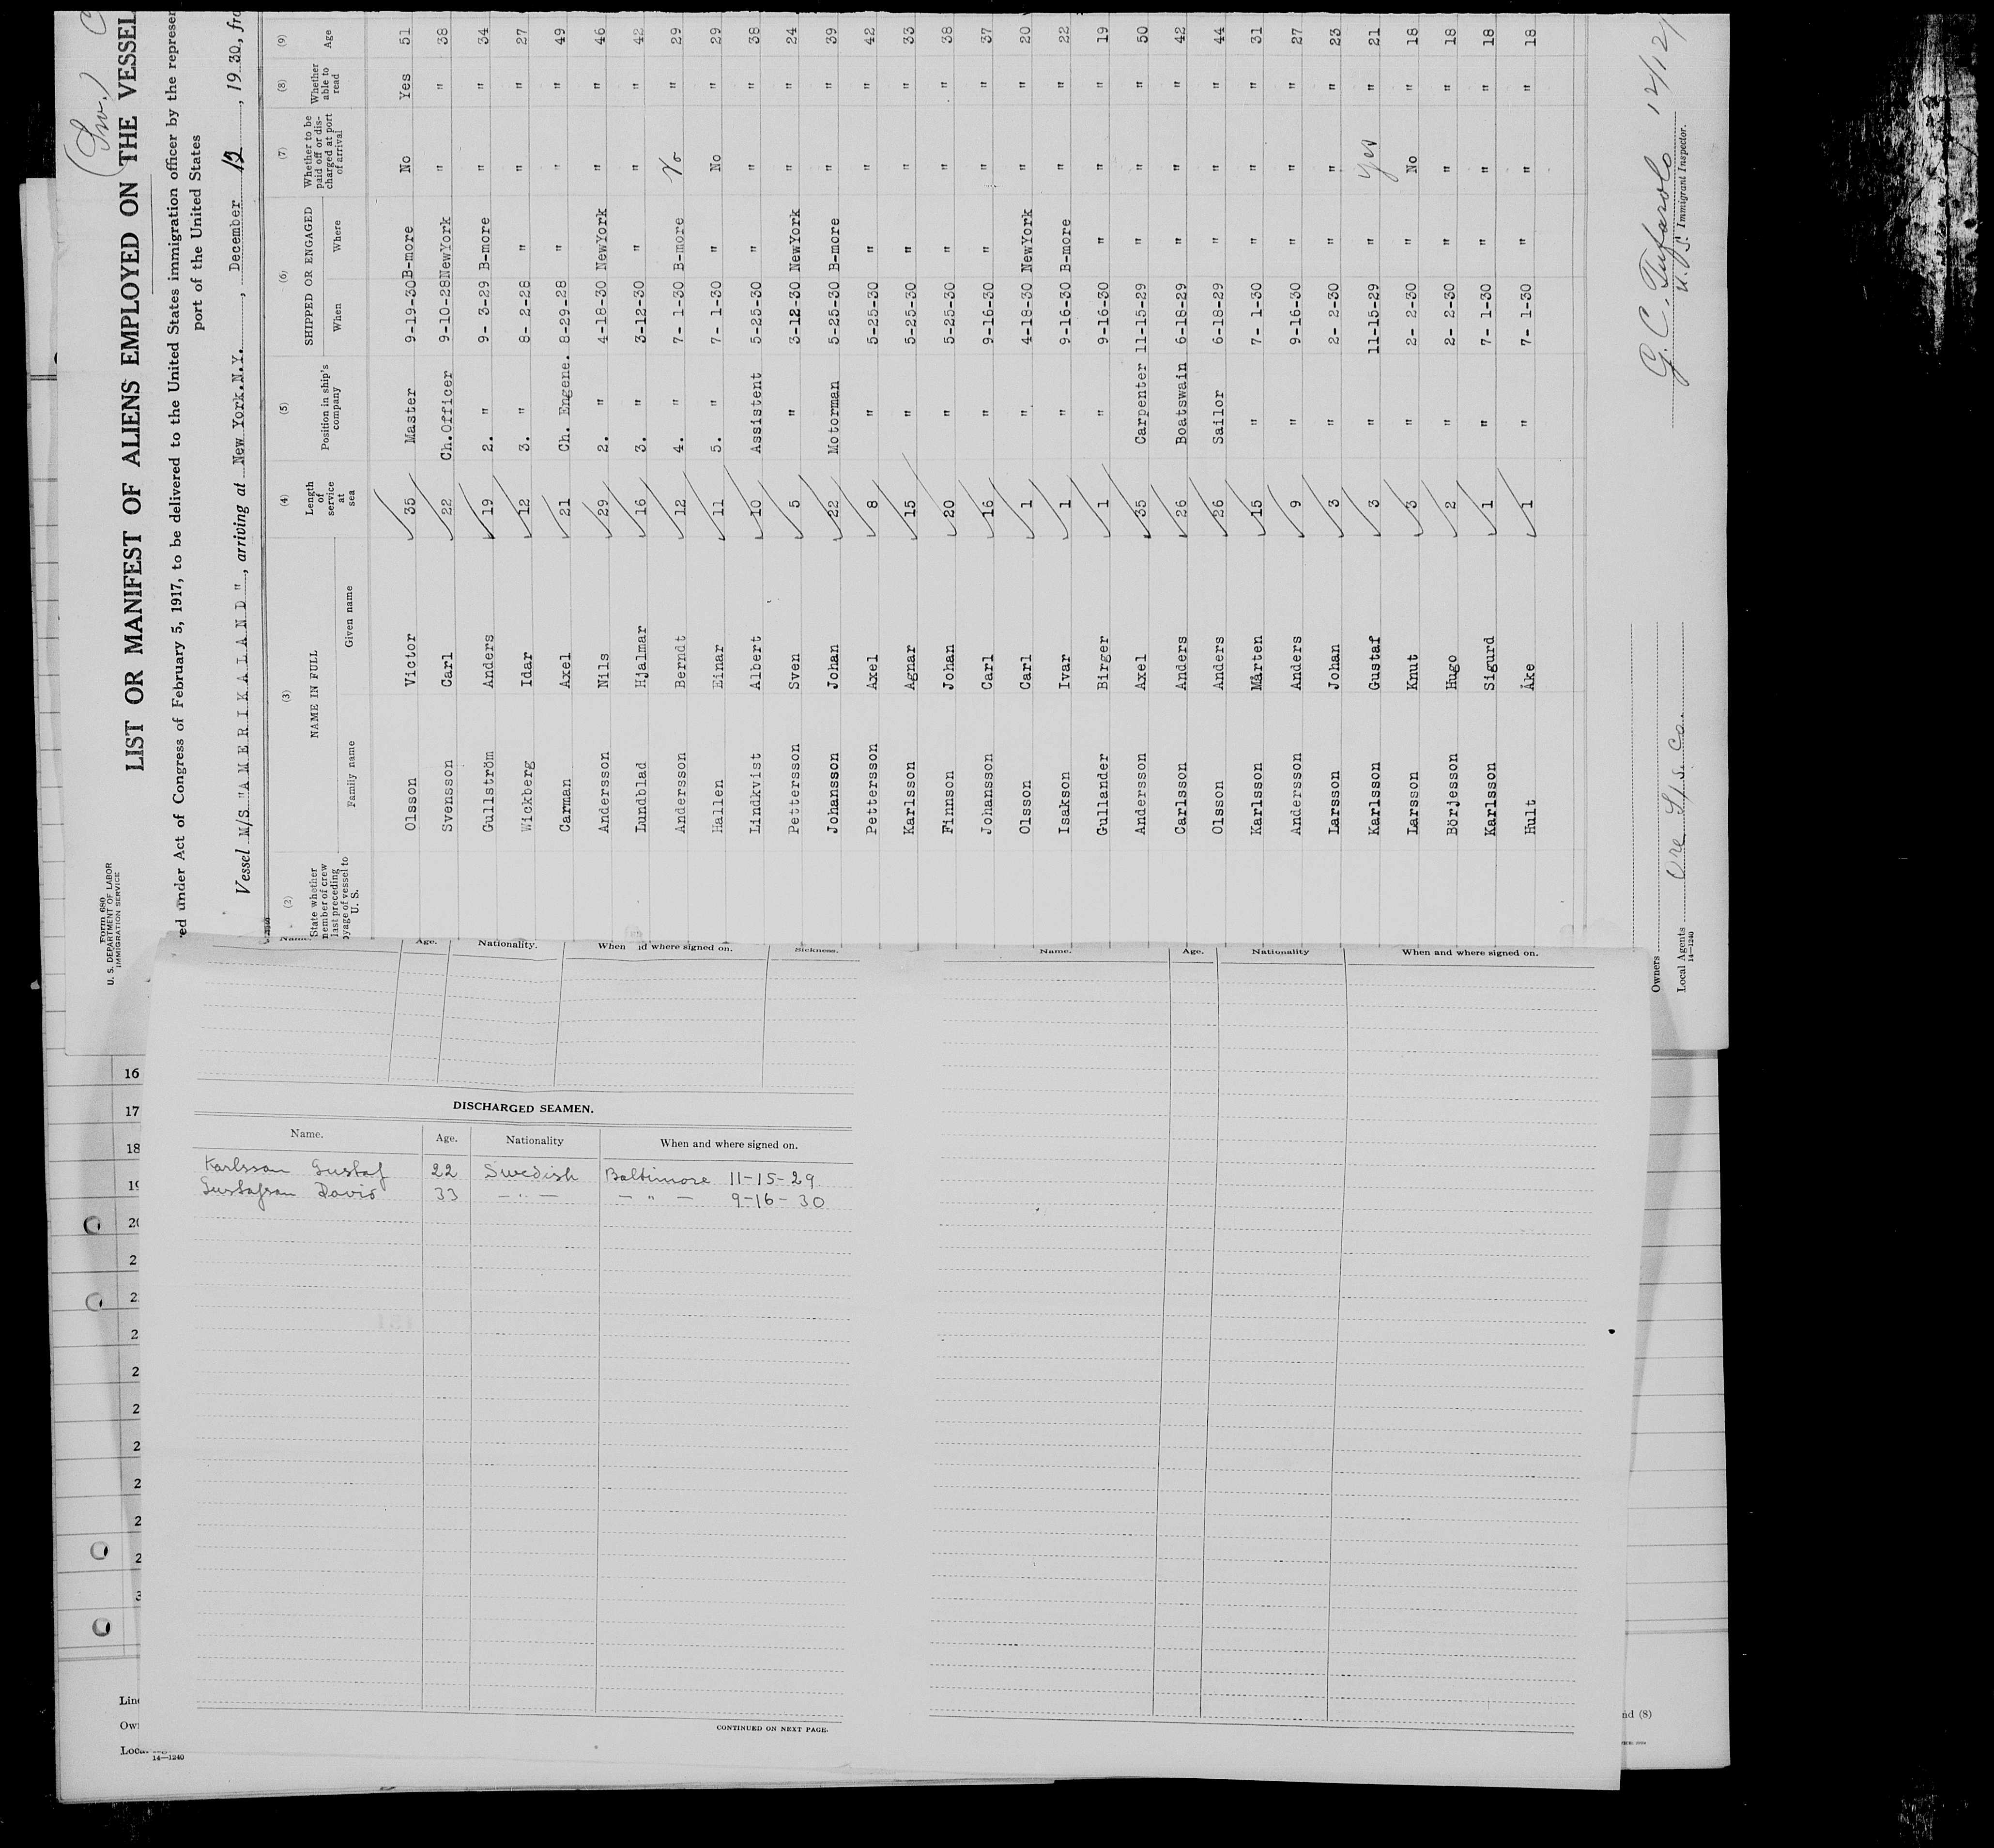 (Sw.)
Form 680
U. S. DEPARTMENT OF LABOR
IMMIGRATION SERVICE
LIST OR MANIFEST OF ALIENS EMPLOYED ON THE VESSEL
ed under Act of Congress of February 5, 1917, to be delivered to the United States immigration officer by the represen
port of the United States
Vessel M/S "AMERIKALAND", arriving at New York.N.Y., December 12, 1930, fro
(2) (3) (4) (5) (6) (7) (8) (9)
State whether member of crew last preceding voyage of vessel to U. S. NAME IN FULL Family name Given name Length of service at sea Position in ship's company SHIPPED OR ENGAGED When Where Whether to be paid off or discharged at port of arrival Whether able to read Age
Olsson Victor 35 Master 9-19-30 B-more No Yes 51
Svensson Carl 22 Ch.Officer 9-10-28 NewYork " " 38
Gullström Anders 19 2. " 9- 3-29 B-more " " 34
Wickberg Idar 12 3. " 8- 2-28 " " " 27
Carman Axel 21 Ch. Engene. 8-29-28 " " " 49
Andersson Nils 29 2. " 4-18-30 NewYork " " 46
Lundblad Hjalmar 16 3. " 3-12-30 " " " 42
Andersson Berndt 12 4. " 7- 1-30 B-more No " 29
Hallen Einar 11 5. " 7- 1-30 " No " 29
Lindkvist Albert 10 Assistent 5-25-30 " " " 38
Pettersson Sven 5 " 3-12-30 NewYork " " 24
Johansson Johan 22 Motorman 5-25-30 B-more " " 39
Pettersson Axel 8 " 5-25-30 " " " 42
Karlsson Agnar 15 " 5-25-30 " " " 33
Finnson Johan 20 " 5-25-30 " " " 38
Johansson Carl 16 " 9-16-30 " " " 37
Olsson Carl 1 " 4-18-30 NewYork " " 20
Isakson Ivar 1 " 9-16-30 B-more " " 22
Gullander Birger 1 " 9-16-30 " " " 19
Andersson Axel 35 Carpenter 11-15-29 " " " 50
Carlsson Anders 26 Boatswain 6-18-29 " " " 42
Olsson Anders 26 Sailor 6-18-29 " " " 44
Karlsson Mårten 15 " 7- 1-30 " " " 31
Andersson Anders 9 " 9-16-30 " " " 27
Larsson Johan 3 " 2- 2-30 " " " 23
Karlsson Gustaf 3 " 11-15-29 " Yes " 21
Larsson Knut 3 " 2- 2-30 " No " 18
Börjesson Hugo 2 " 2- 2-30 " " " 18
Karlsson Sigurd 1 " 7- 1-30 " " " 18
Hult Åke 1 " 7- 1-30 " " " 18
G. C. Tufarolo 12/12/
U. S. Immigrant Inspector.
Owners
Local Agents Ore S/S. Co.
14—1240
Name. Age. Nationality. When and where signed on. Sickness.
DISCHARGED SEAMEN.
Name. Age. Nationality When and where signed on.
Karlsson Gustaf 22 Swedish Baltimore 11-15-29
Gustafson David 33 — " — — " — 9-16-30
CONTINUED ON NEXT PAGE.
Name. Age. Nationality When and where signed on.
16
17
18
14—1240
nd (8)